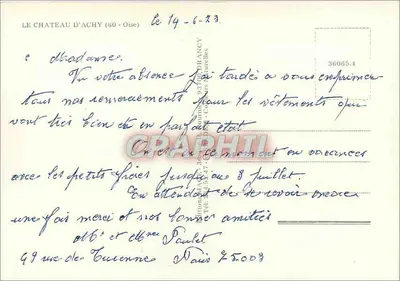 LE CHATEAU D'ACHY (60 - Oise)
le 19-6-23
Madame.
Vu votre absence j'ai tardé a vous exprimer
tous nos remerciements pour les vêtements qui
vont très bien et en parfait état
en ce moment en vacances
avec les petits frères jusqu'au 8 juillet.
En attendant de se revoir encore
une fois merci et nos bonnes amitiés
Mr et Mme Paulet
49 rue de Turenne Paris 75003
36065-A
CPAPHTI